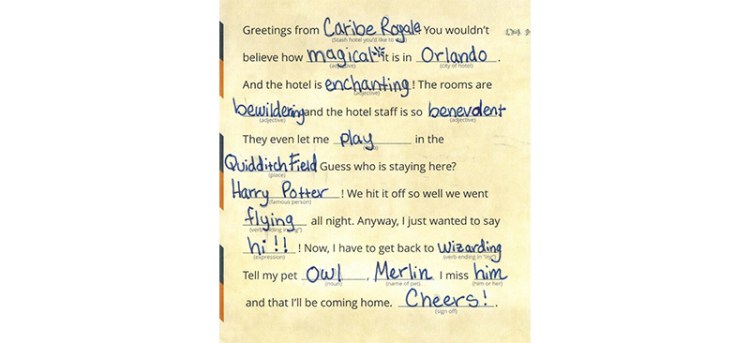 Greetings from Caribe Royale You wouldn't
(Stash hotel you'd like to
believe how magical it is in Orlando.
(adjective) (city of hotel)
And the hotel is enchanting! The rooms are
(adjective)
bewildering and the hotel staff is so benevolent
(adjective) (adjective)
They even let me play in the
Quidditch Field Guess who is staying here?
(place)
Harry Potter! We hit it off so well we went
(famous person)
flying all night. Anyway, I just wanted to say
(verb ending in "ing")
hi!!! Now, I have to get back to Wizarding
(expression) (verb ending in "ing")
Tell my pet Owl, Merlin I miss him
(noun) (name of pet) (him or her)
and that I'll be coming home. Cheers!.
(sign off)